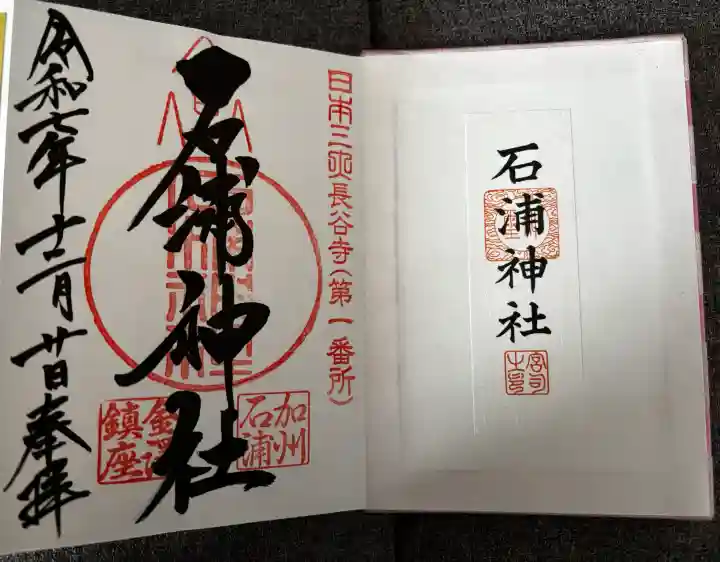 石浦神社
宮司之印
日本三大長谷寺(第一番所)
加州
石浦
石浦神社
金澤
鎮座
令和七年十二月廿日奉拝